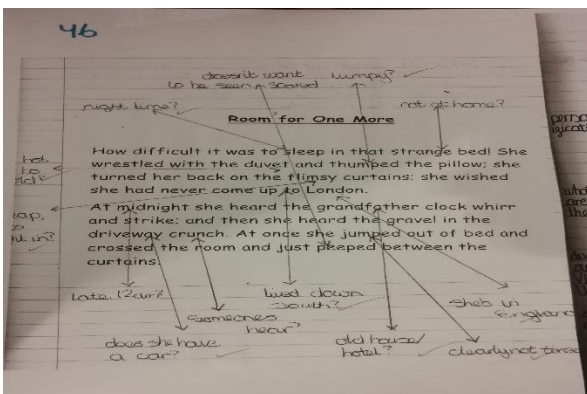 46
doesn't want
to be seen/scared
lumpy?
night time?
not at home?
Room for One More
How difficult it was to sleep in that strange bed! She
wrestled with the duvet and thumped the pillow; she
turned her back on the flimsy curtains; she wished
she had never come up to London.
At midnight she heard the grandfather clock whirr
and strike; and then she heard the gravel in the
driveway crunch. At once she jumped out of bed and
crossed the room and just peeped between the
curtains.
late 12am?
lived down
south?
she's in
someones
does she have
a car?
old house/
hotel?
clearly not tired